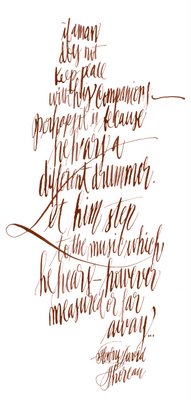 if a man
does not
keep pace
with his companions—
perhaps it is because
he hears a
different drummer.
Let him step
to the music which
he hears—however
measured or far
away.'
Henry David
Thoreau